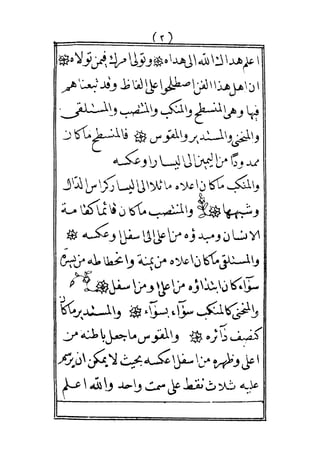 (٢)
اعلم هداك الله الى هداه وتولى امرك فيمن تولاه
ان اهل هذا الفن اصطلحوا على الفاظ وقد تبعناهم
فيها وهى المنسطح والمنكب والمنتصب والمستلقى
والمنحنى والمستدير والمقوس فالمنسطح ماكان
ممدودا من اليمين الى اليسار او عكسه
والمنكب ماكان اعلاه مائلا الى اليسار كراس الدال
وشبهها والمنتصب ماكان قائما كقامة
الانسان ومبدؤه من اعلى الى سفل او عكسه
والمستلقى ماكان اعلاه من يمنة وانحطاطه من يسرة
سواء كان ابتداؤه من اعلى ومن اسفل
والمنحنى كالمنكب سواء بسواء والمستدير ماكان
كنصف دائره والمقوس ماجعل باطنه من
اعلى وظهره من اسفل او عكسه بحيث لا يمكن ان يرسم
عليه ثلاث نقط على سمت واحد والله اعلم